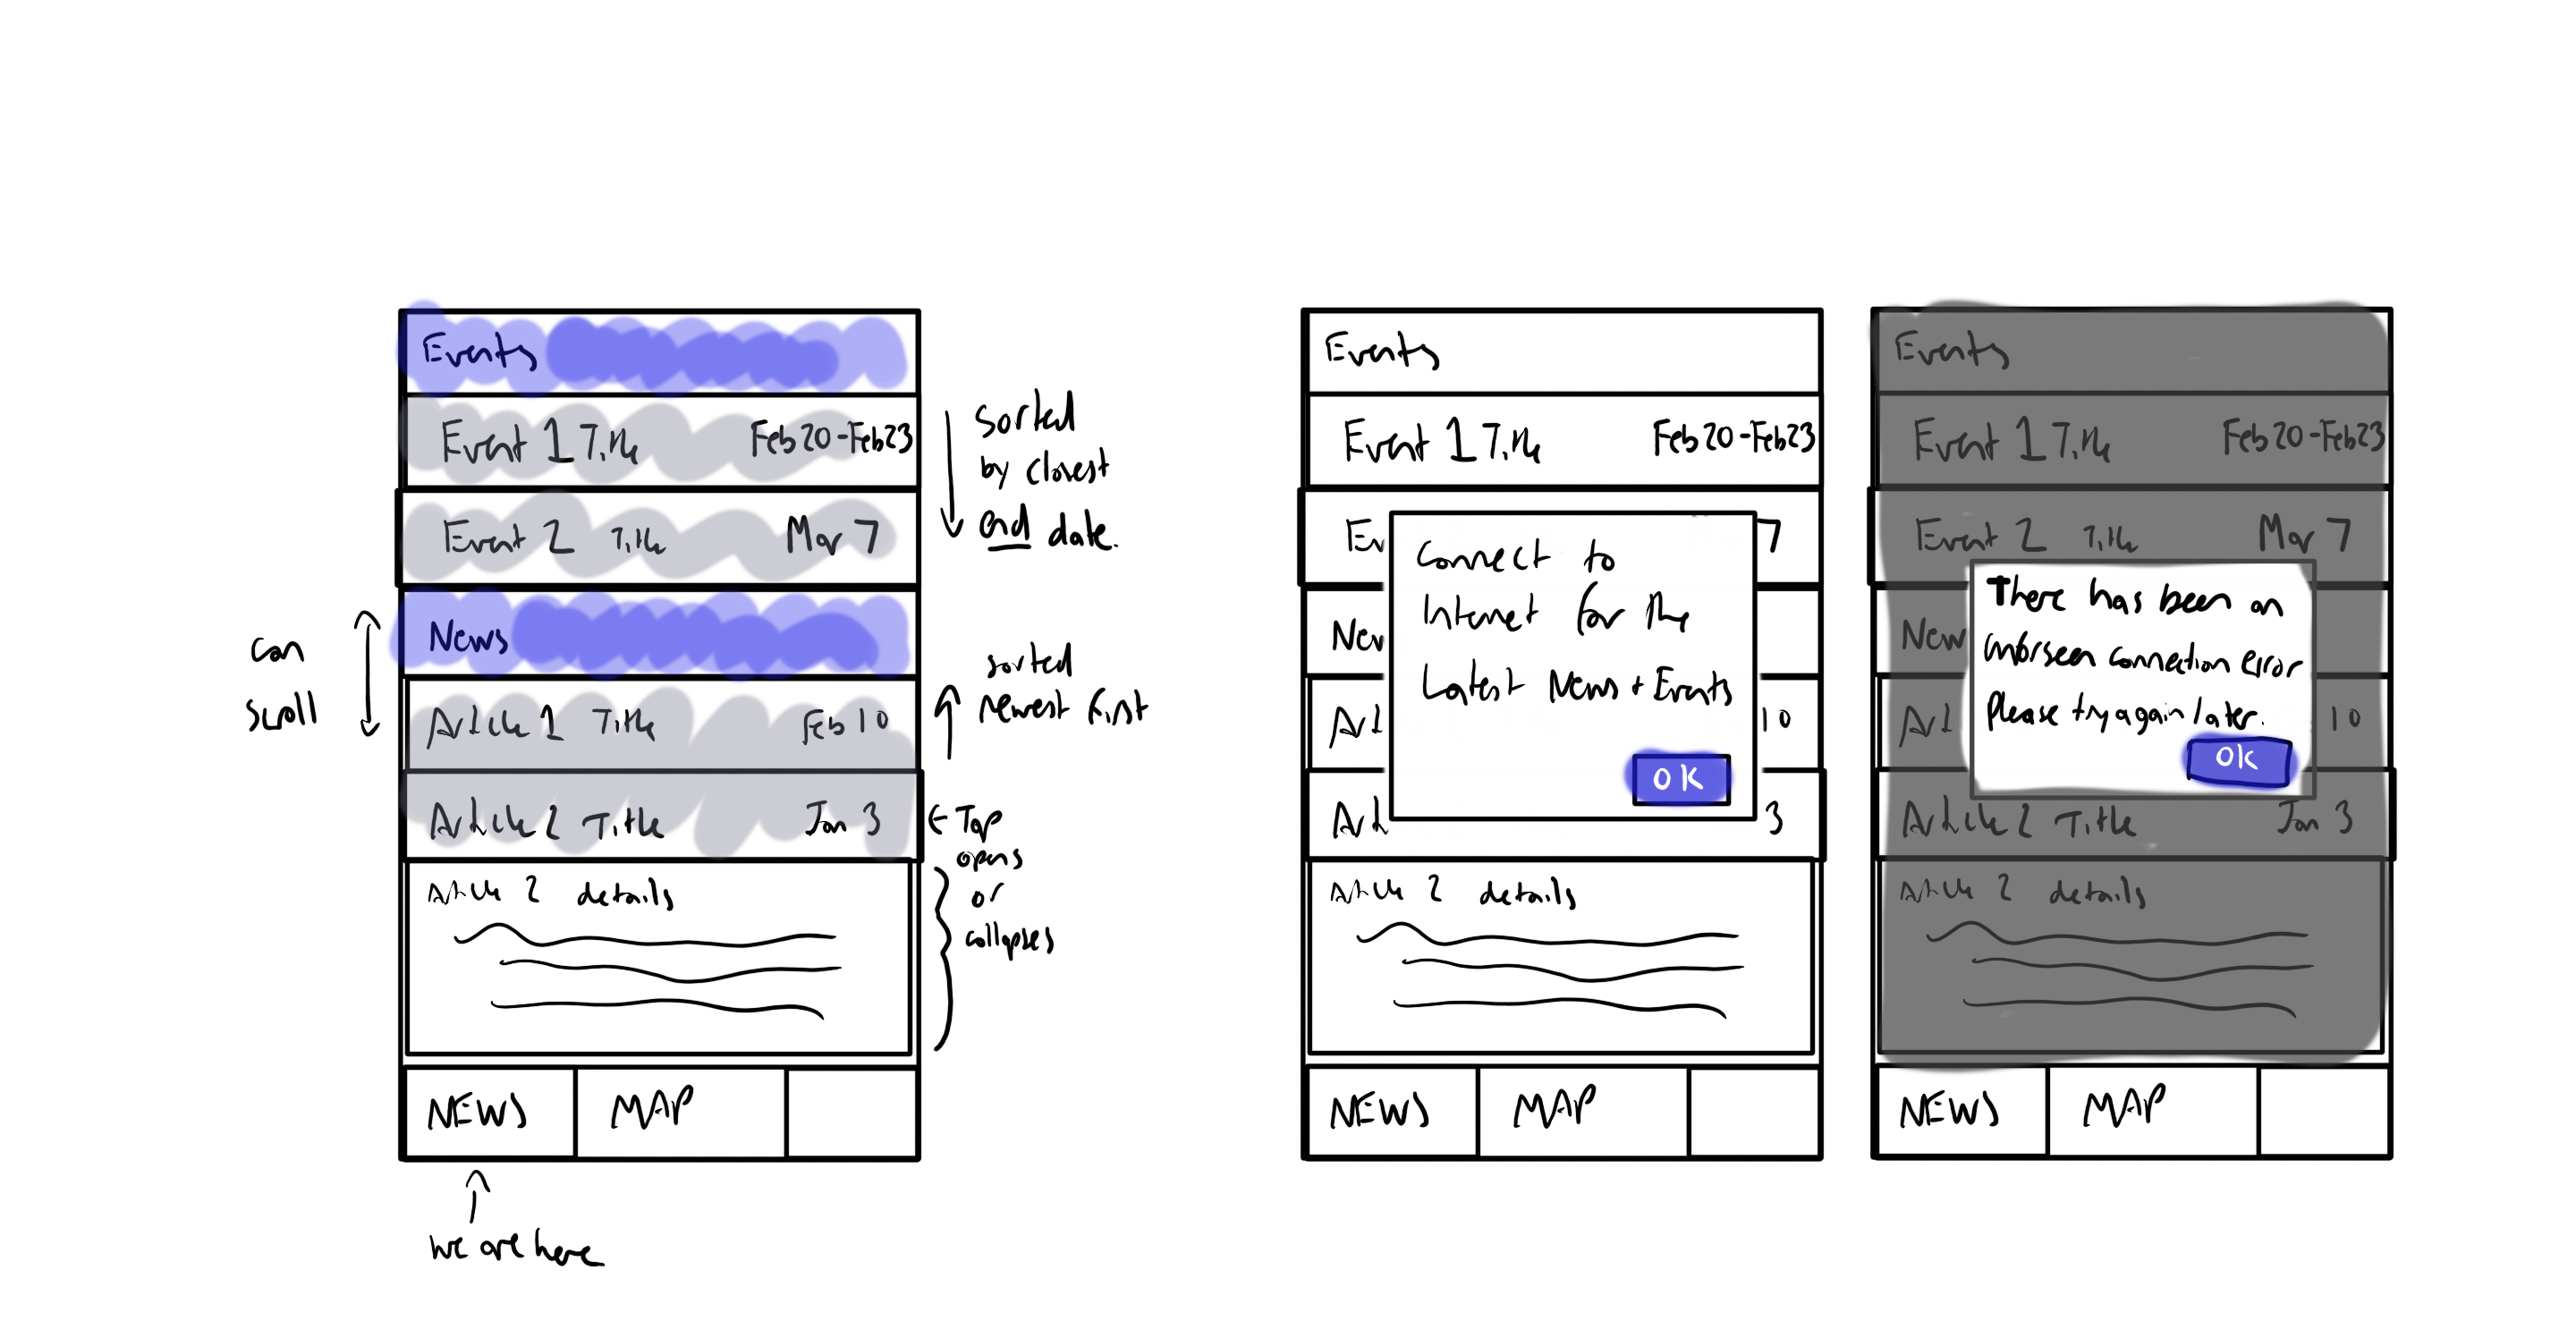 Events
Event 1 Title Feb 20 - Feb 23
Event 2 Title Mar 7
News
Article 1 Title Feb 10
Article 2 Title Jan 3
Article 2 details
NEWS MAP
we are here
can
scroll
sorted
by closest
end date.
sorted
newest first
← Tap
opens
or
collapses
Events
Event 1 Title Feb 20 - Feb 23
Ev 7
New
Art 10
Art 3
Connect to
Internet for the
Latest News + Events
OK
Article 2 details
NEWS MAP
Events
Event 1 Title Feb 20 - Feb 23
Event 2 Title Mar 7
New
Art 10
There has been an
unforseen connection error
Please try again later.
OK
Article 2 Title Jan 3
Article 2 details
NEWS MAP